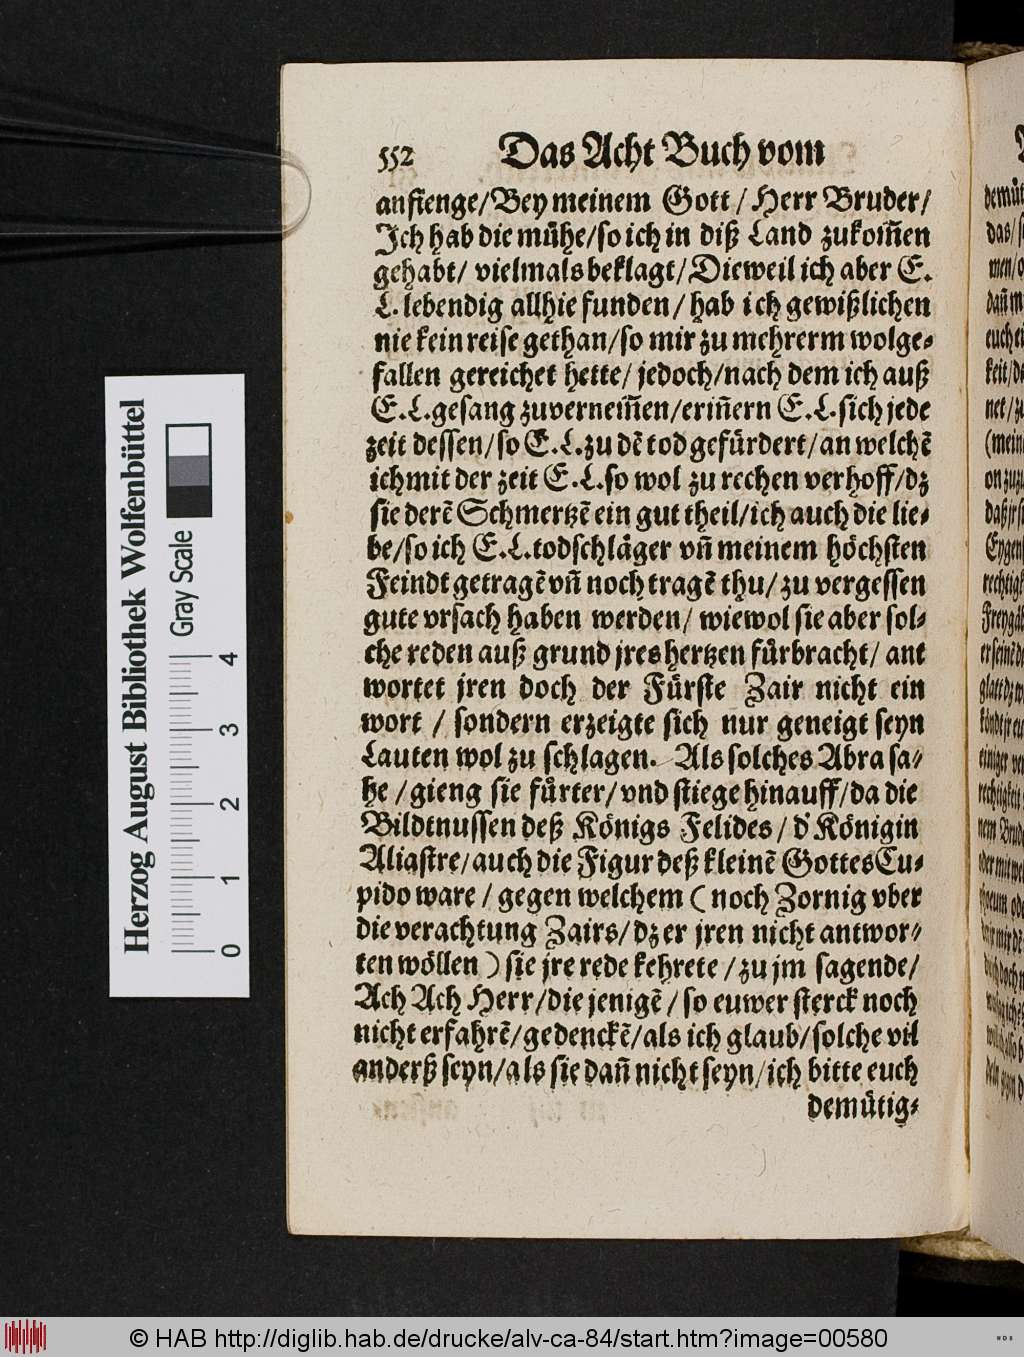 552 Das Acht Buch vom
anfienge/Bey meinem Gott / Herr Bruder/
Ich hab die mühe/so ich in diß Land zukom̃en
gehabt/ vielmals beklagt/Dieweil ich aber E.
L. lebendig allhie funden / hab ich gewißlichen
nie kein reise gethan/so mir zu mehrerm wolge-
fallen gereichet hette/ jedoch/nach dem ich auß
E.L.gesang zuvernem̃en/eriñern E.L.sich jede
zeit dessen/so E.L.zu dẽ tod gefürdert/an welchẽ
ich mit der zeit E.L.so wol zu rechen verhoff/dz
sie derẽ Schmertzẽ ein gut theil/ich auch die lie-
be/so ich E.L.todschläger vñ meinem höchsten
Feindt getragẽ vñ noch tragẽ thu/ zu vergessen
gute vrsach haben werden/ wiewol sie aber sol-
che reden auß grund jres hertzen fürbracht/ ant
wortet jren doch der Fürste Zair nicht ein
wort / sondern erzeigte sich nur geneigt seyn
Lauten wol zu schlagen. Als solches Abra sa-
he /gieng sie fürter/vnd stiege hinauff/da die
Bildtnussen deß Königs Felides / d' Königin
Aliastre/auch die Figur deß kleinẽ Gottes Cu-
pido ware / gegen welchem ( noch Zornig vber
die verachtung Zairs/dz er jren nicht antwor-
ten wöllen ) sie jre rede kehrete / zu jm sagende/
Ach Ach Herr/die jenigẽ / so euwer sterck noch
nicht erfahrẽ/gedenckẽ/als ich glaub/solche vil
anderß seyn/als sie dañ nicht seyn/ich bitte euch
demütig-
demüt
das/
men/
dañ m
euch
keit/
net/
(mein
Herzog August Bibliothek Wolfenbüttel
Gray Scale
0 1 2 3 4
© HAB http://diglib.hab.de/drucke/alv-ca-84/start.htm?image=00580